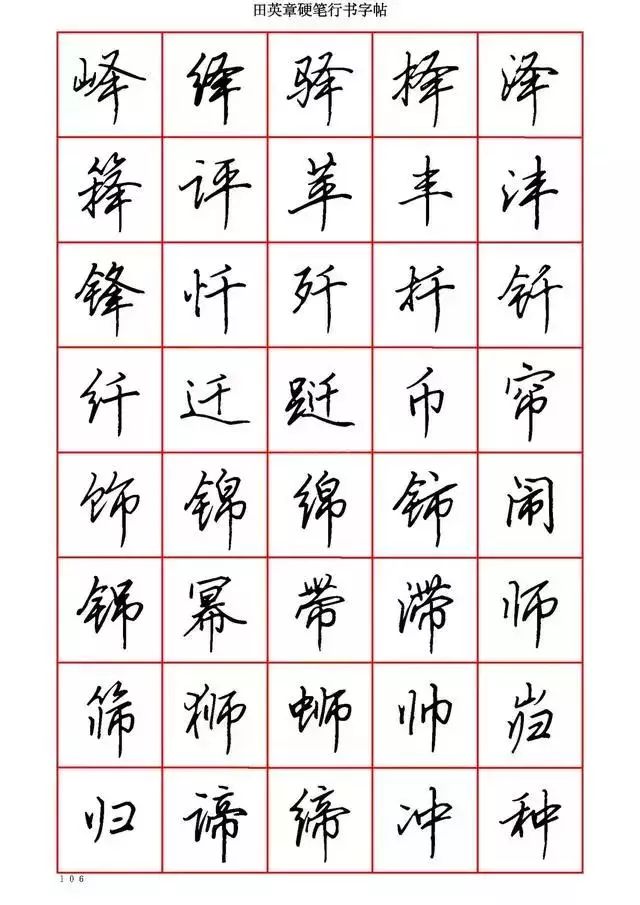 田英章硬笔行书字帖
峄绎驿择泽
箨评苹丰沣
锋忏歼扦钎
纤迁跹币帘
饰锦绵铈闹
幂带滞师
筛狮蛳帅岿
归谛缔冲种
106